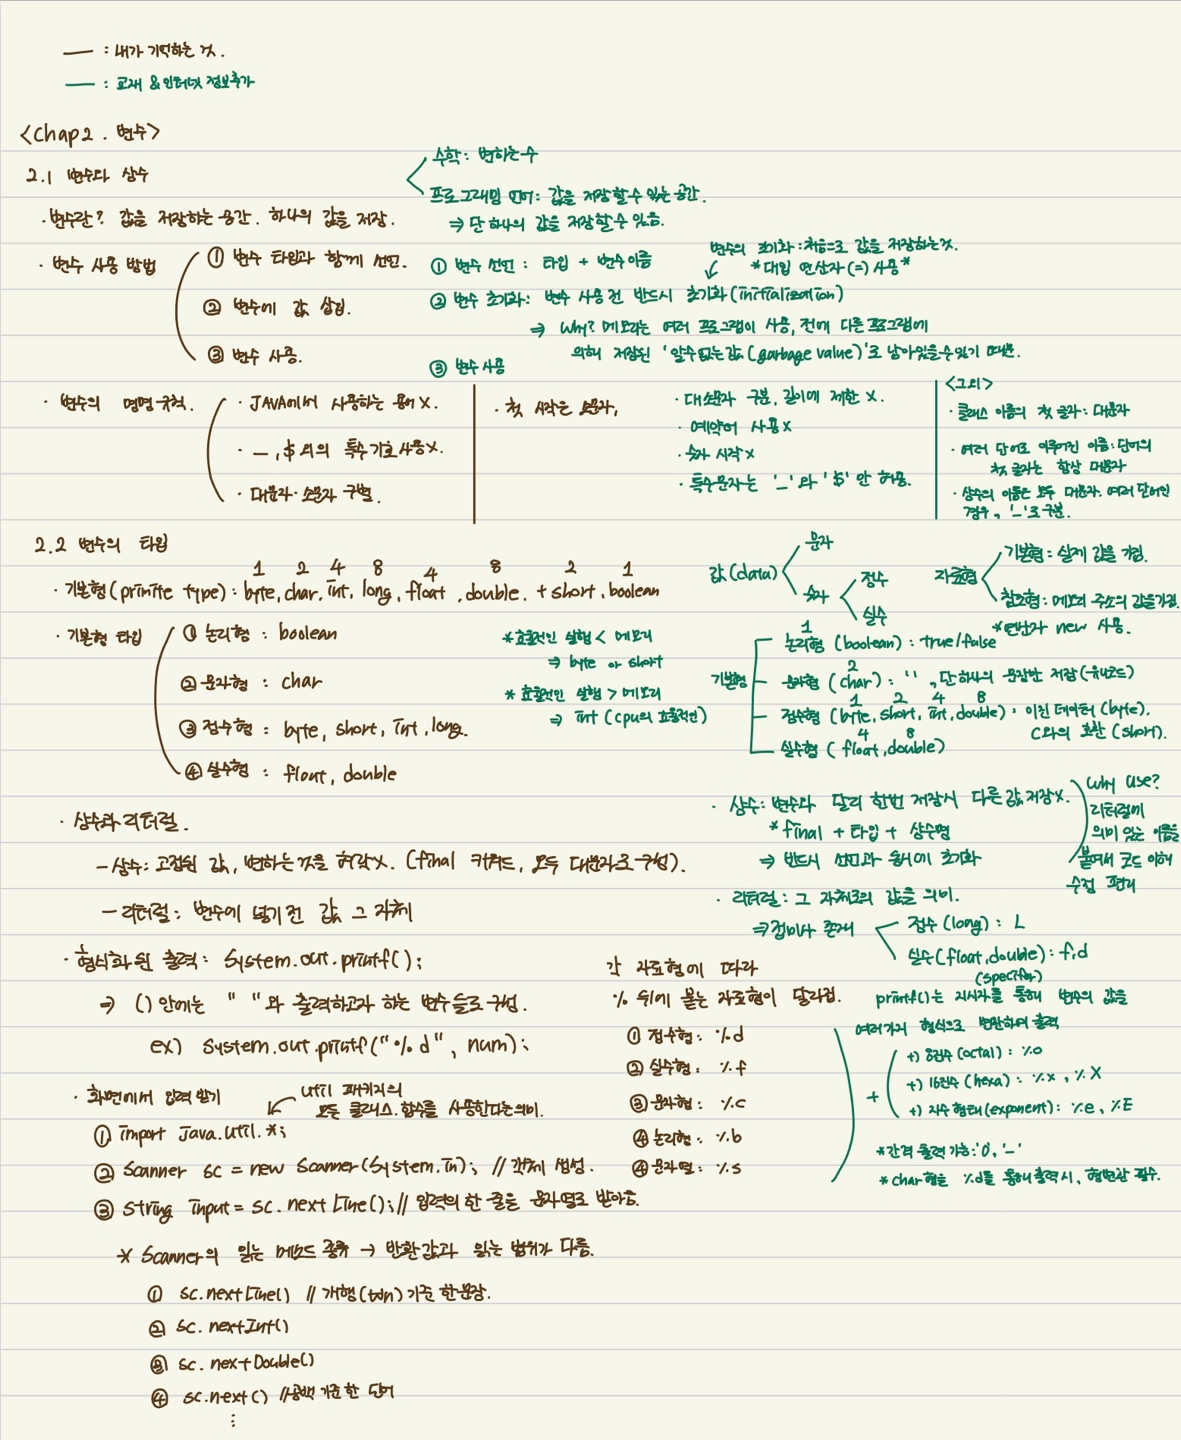 — : 내가 기억하는 것.
— : 교재 & 인터넷 정보추가
<Chap2. 변수>
2.1 변수와 상수
수학 : 변하는 수
프로그래밍 언어 : 값을 저장할 수 있는 공간.
⇒ 단 하나의 값을 저장할 수 있음.
· 변수란? 값을 저장하는 공간. 하나의 값을 저장.
· 변수 사용 방법
① 변수 타입과 함께 선언.
② 변수에 값 삽입.
③ 변수 사용.
① 변수 선언 : 타입 + 변수이름
변수의 초기화 : 처음으로 값을 저장하는 것.
*대입 연산자(=) 사용*
② 변수 초기화 : 변수 사용 전 반드시 초기화(initialization)
⇒ Why? 메모리는 여러 프로그램이 사용, 전에 다른 프로그램에
의해 저장된 '알수없는 값(garbage value)'로 남아있을 수 있기 때문.
③ 변수 사용
· 변수의 명명규칙.
· JAVA에서 사용하는 용어 X.
· _ , $ 외의 특수기호 사용 X.
· 대문자 · 소문자 구별.
· 첫 시작은 소문자,
· 대소문자 구분, 길이에 제한 X.
· 예약어 사용 X
· 숫자 시작 X
· 특수문자는 '_' 와 '$' 만 허용.
<그외>
· 클래스 이름의 첫 글자 : 대문자
· 여러 단어로 이루어진 이름 : 단어의
첫 글자는 항상 대문자
· 상수의 이름은 모두 대문자. 여러 단어인
경우, '_'로 구분.
2.2 변수의 타입
1 2 4 8 4 8 2 1
· 기본형(primite type) : byte, char, int, long, float, double. + short, boolean
· 기본형 타입
① 논리형 : boolean
② 문자형 : char
③ 정수형 : byte, short, int, long.
④ 실수형 : float, double
*효율적인 실행 < 메모리
⇒ byte or short
* 효율적인 실행 > 메모리
⇒ int (cpu의 효율적인)
값(data)
문자
숫자
정수
실수
자료형
기본형 : 실제 값을 가짐.
참조형 : 메모리 주소의 값을 가짐.
*연산자 new 사용.
기본형
1
논리형 (boolean) : true/false
2
문자형 (char) : ' ' , 단 하나의 문자만 저장(유니코드)
1 2 4 8
정수형 (byte, short, int, double) : 이진 데이터 (byte).
C와의 호환 (short).
4 8
실수형 ( float, double)
· 상수와 리터럴.
– 상수 : 고정된 값, 변하는 것을 허락 X. (final 키워드, 모두 대문자로 구성).
– 리터럴 : 변수에 넣기 전 값 그 자체
· 상수 : 변수와 달리 한번 저장시 다른 값 저장 X.
* final + 타입 + 상수명
⇒ 반드시 선언과 동시에 초기화
Why use?
리터럴에
의미 있는 이름을
붙여서 코드 이해
수정 편리
· 리터럴 : 그 자체로의 값을 의미.
⇒ 접미사 존재
정수 (long) : L
실수(float, double) : f, d
· 형식화된 출력 : System.out.printf();
⇒ ( ) 안에는 " " 와 출력하고자 하는 변수들로 구성.
ex) system.out.printf("%d", num);
각 자료형에 따라
% 뒤에 붙는 자료형이 달라짐.
① 정수형 : %d
② 실수형 : %f
③ 문자형 : %c
④ 논리형 : %b
④ 문자열 : %s
printf()는 지시자를 통해 변수의 값을
여러가지 형식으로 변환하여 출력
+
+) 8진수 (octal) : %o
+) 16진수 (hexa) : %x , %X
+) 지수 형태(exponent) : %e, %E
*간격 출력 가능 : '0', '_'
* char형을 %d를 통해 출력시, 형변환 필수.
· 화면에서 입력 받기
util 패키지의
모든 클래스 함수를 사용한다는 의미.
① import java.util.*;
② Scanner sc = new Scanner(System.in); // 객체 생성.
③ string input = sc.nextLine(); // 입력의 한 줄을 문자열로 받아옴.
* Scanner의 읽는 메소드 종류 → 반환 값과 읽는 범위가 다름.
① sc.nextLine() // 개행 기준 한 문장.
② sc.nextInt()
③ sc.nextDouble()
④ sc.next() // 공백 기준 한 단어
⋮